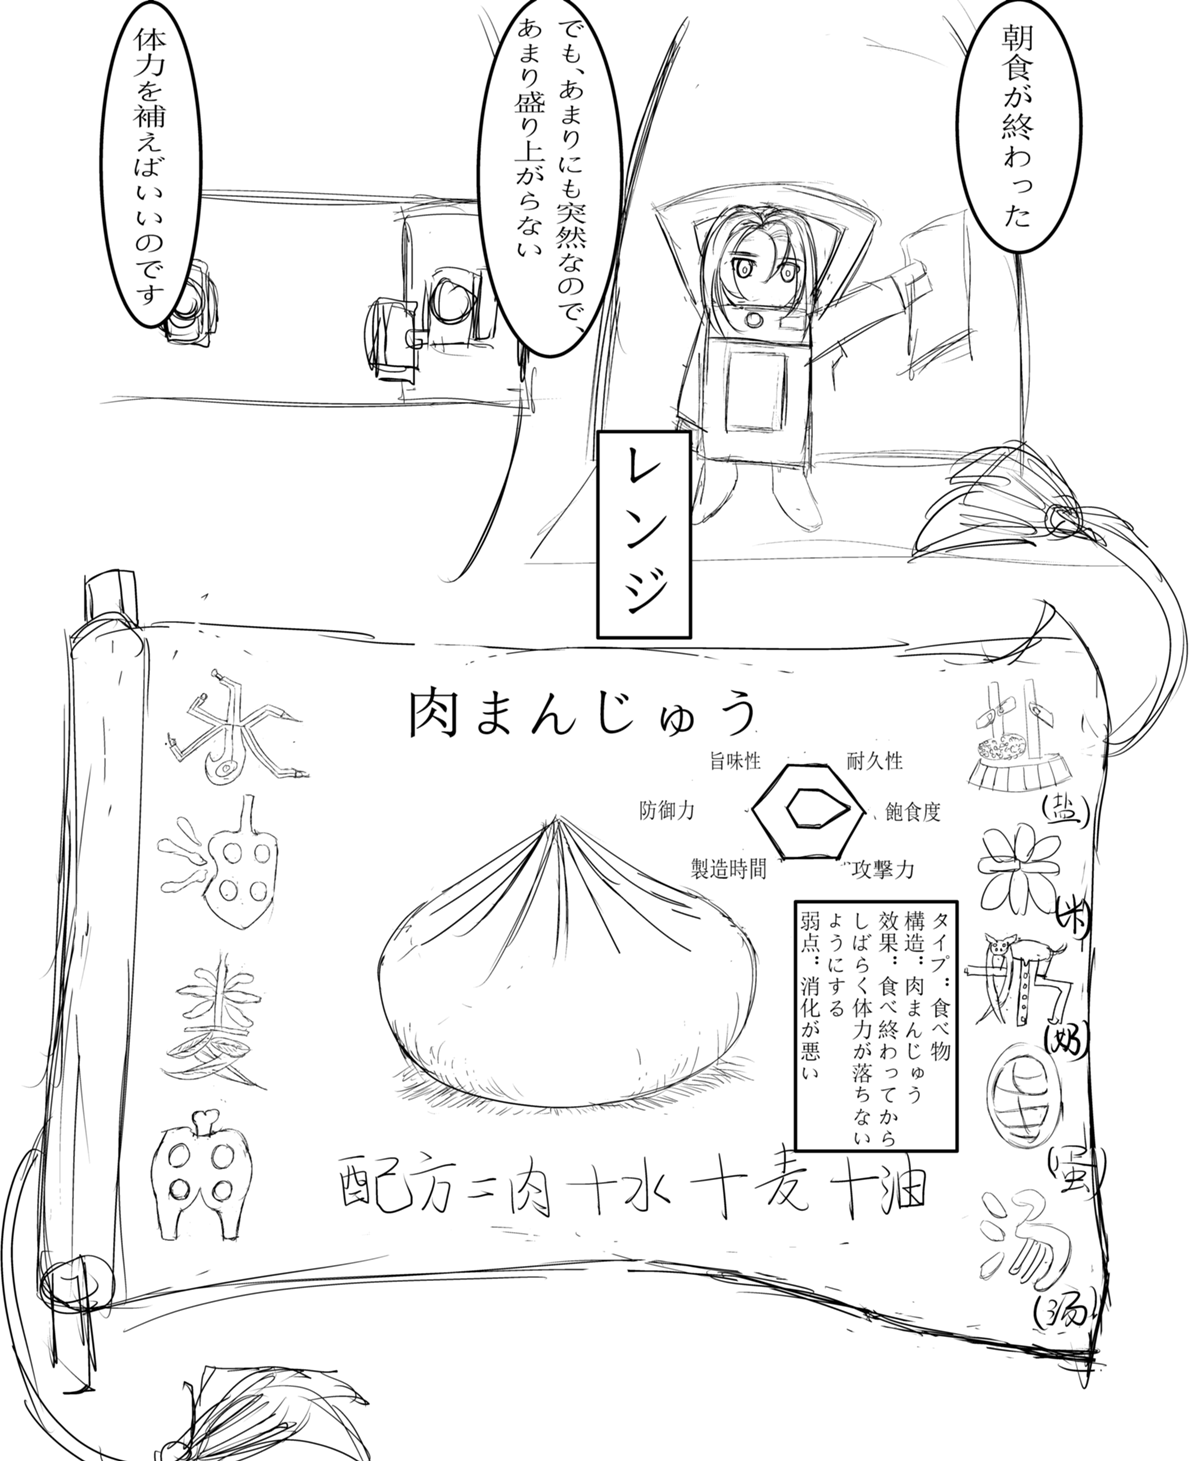 朝食が終わった
でも、あまりにも突然なので、
あまり盛り上がらない
体力を補えばいいのです
レンジ
肉まんじゅう
旨味性
耐久性
防御力
飽食度
製造時間
攻撃力
タイプ：食べ物
構造：肉まんじゅう
効果：食べ終わってから
しばらく体力が落ちない
ようにする
弱点：消化が悪い
(盐)
(米)
(奶)
(蛋)
(汤)
汤
配方=肉+水+麦+油